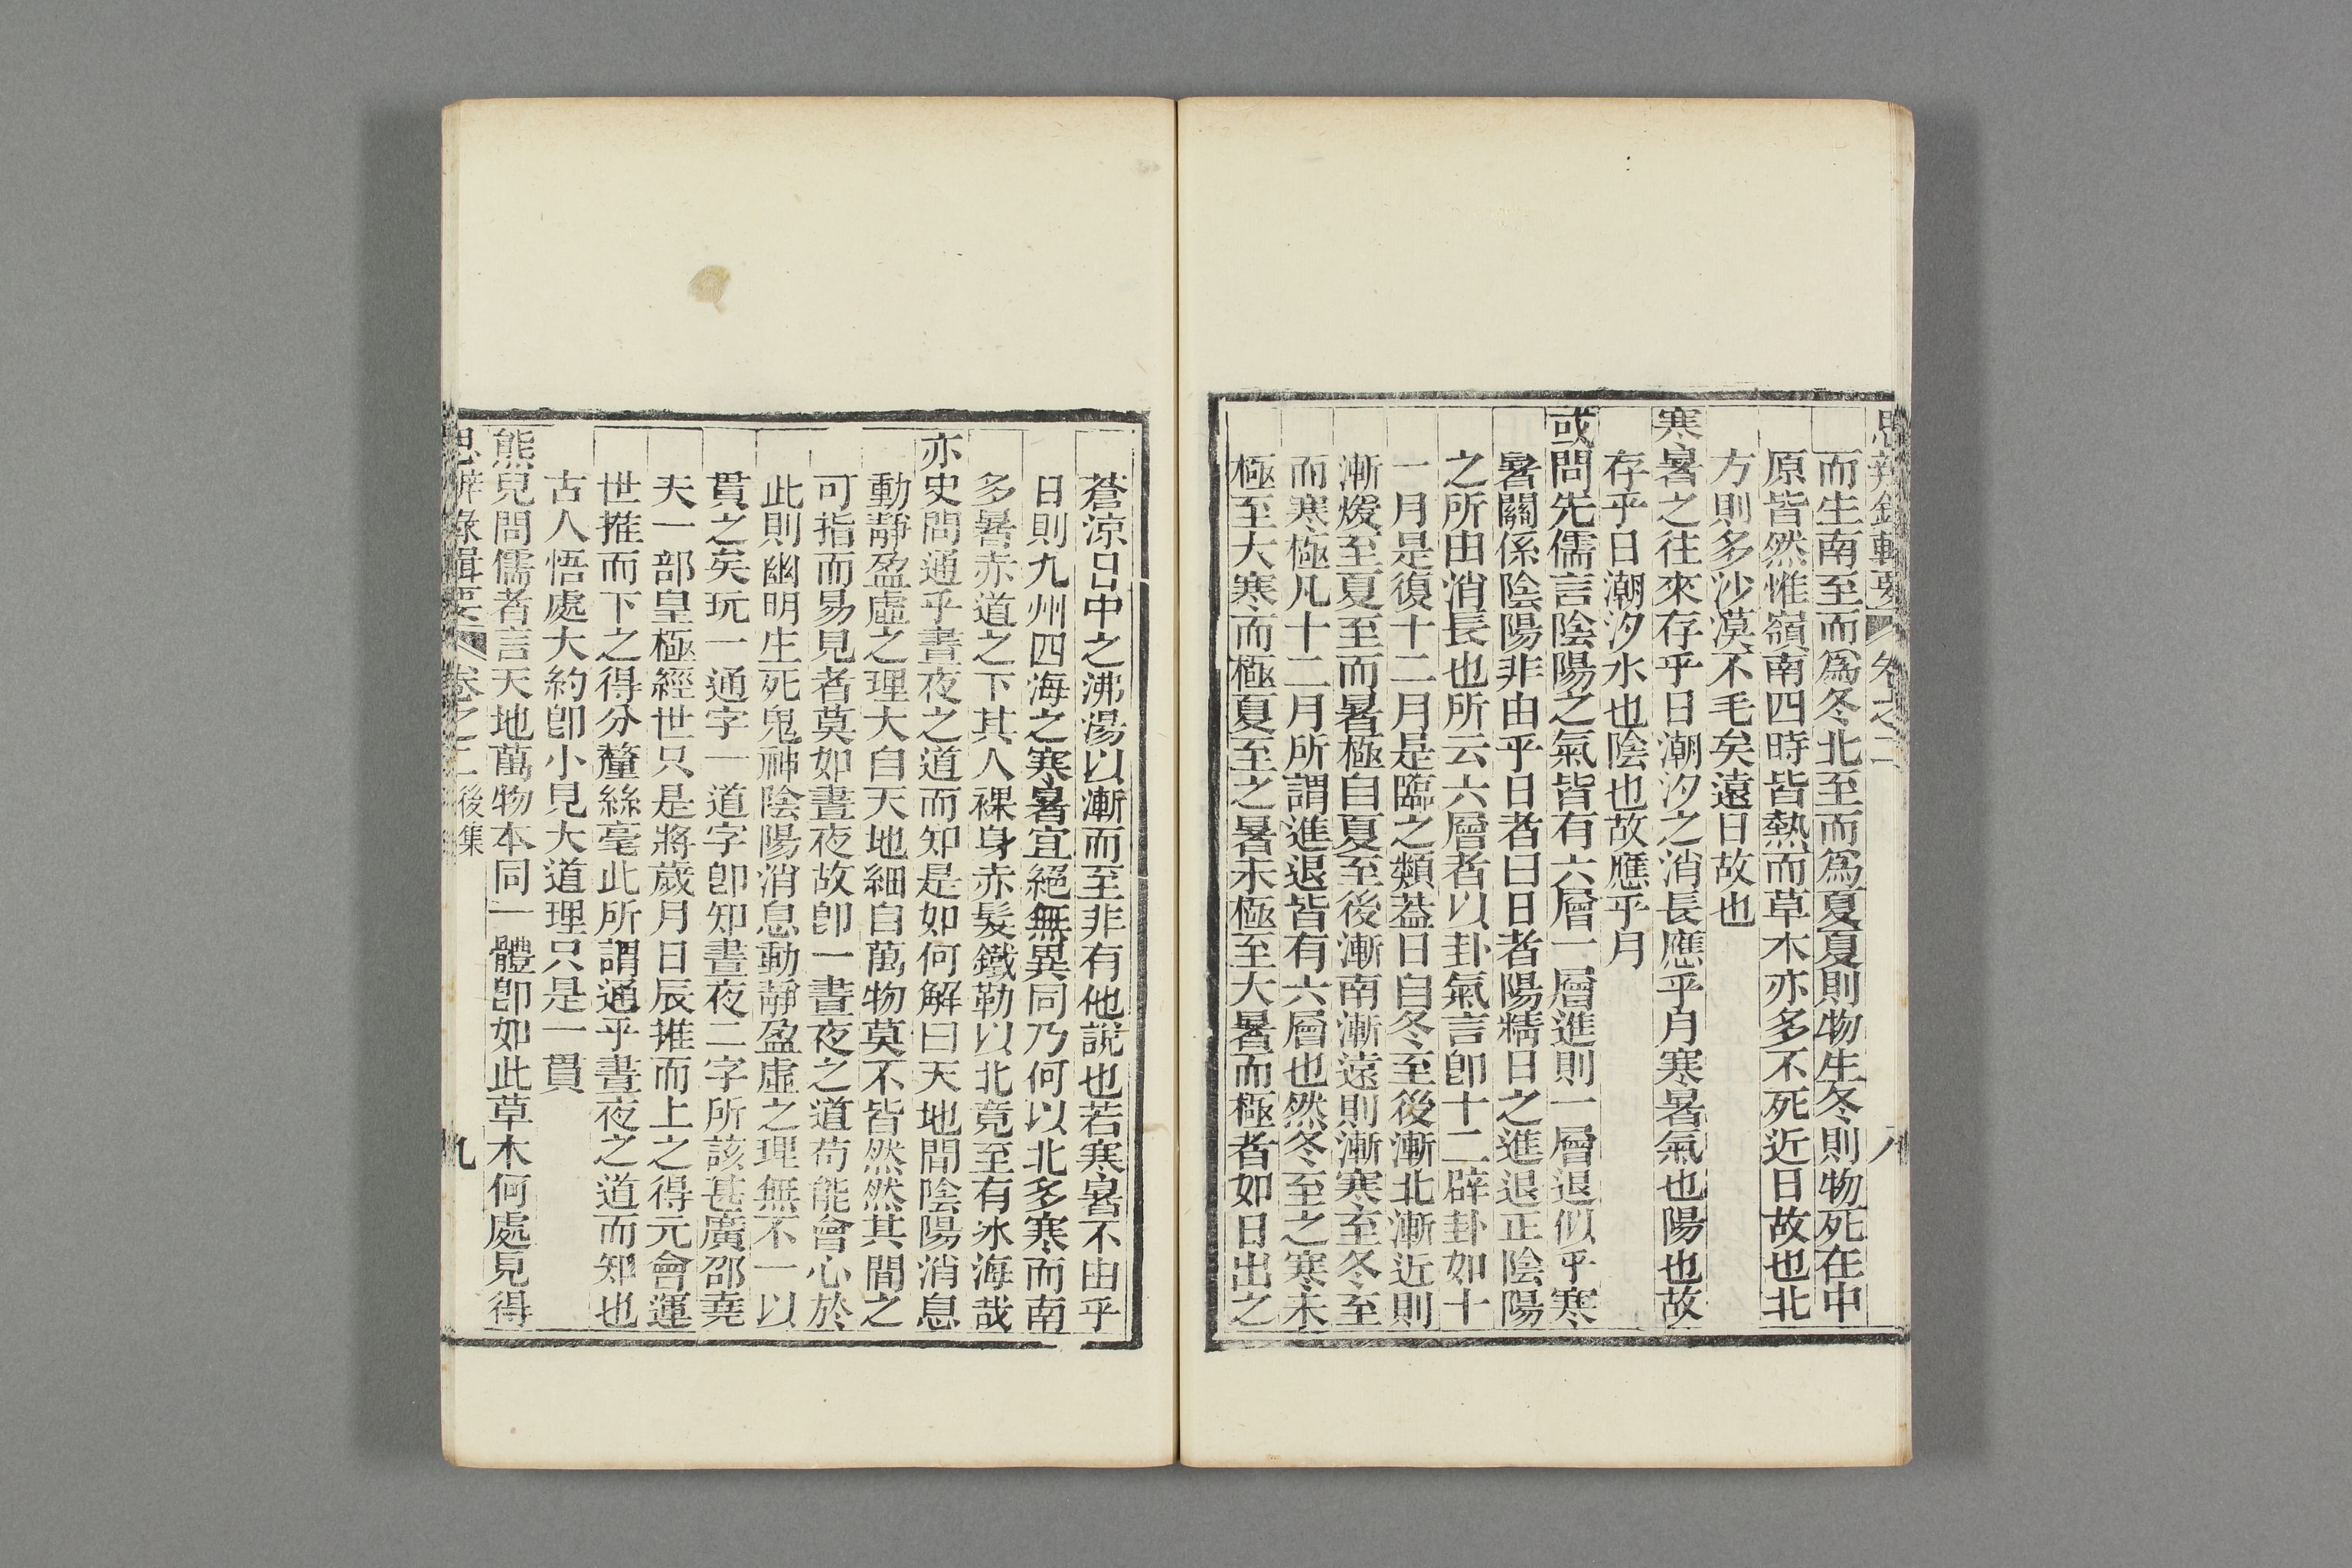 思辨錄輯要 卷之二 八
而生南至而爲冬北至而爲夏夏則物生冬則物死在中
原皆然惟嶺南四時皆熱而草木亦多不死近日故也北
方則多沙漠不毛矣遠日故也
寒暑之往來存乎日潮汐之消長應乎月寒暑氣也陽也故
存乎日潮汐水也陰也故應乎月
或問先儒言陰陽之氣皆有六層一層進則一層退似乎寒
暑關係陰陽非由乎日者曰日者陽精日之進退正陰陽
之所由消長也所云六層者以卦氣言卽十二辟卦如十
一月是復十二月是臨之類葢日自冬至後漸北漸近則
漸煖至夏至而暑極自夏至後漸南漸遠則漸寒至冬至
而寒極凡十二月所謂進退皆有六層也然冬至之寒未
極至大寒而極夏至之暑未極至大暑而極者如日出之
蒼涼日中之沸湯以漸而至非有他說也若寒暑不由乎
日則九州四海之寒暑宜絕無異同乃何以北多寒而南
多暑赤道之下其人裸身赤髮鐵勒以北竟至有氷海哉
亦史問通乎晝夜之道而知是如何解曰天地間陰陽消息
動靜盈虛之理大自天地細自萬物莫不皆然然其間之
可指而易見者莫如晝夜故卽一晝夜之道苟能會心於
此則幽明生死鬼神陰陽消息動靜盈虛之理無不一以
貫之矣玩一通字一道字卽知晝夜二字所該甚廣邵堯
夫一部皇極經世只是將歲月日辰推而上之得元會運
世推而下之得分釐絲毫此所謂通乎晝夜之道而知也
古人悟處大約卽小見大道理只是一貫
熊兒問儒者言天地萬物本同一體卽如此草木何處見得
思辨錄輯要 卷之二 後集 九